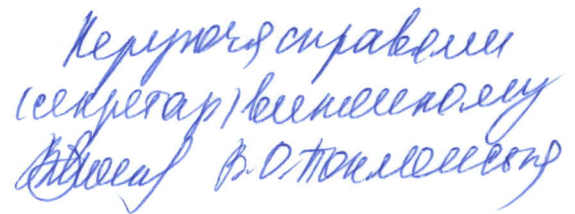 Керуюча справами
(секретар) виконкому
В.О. Токманська